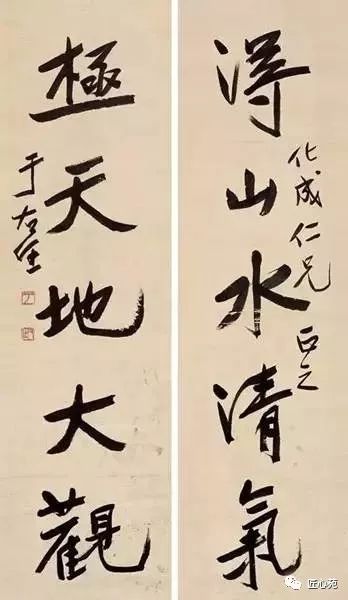 得山水清氣
化成仁兄 正之
極天地大觀
于右任
匠心苑